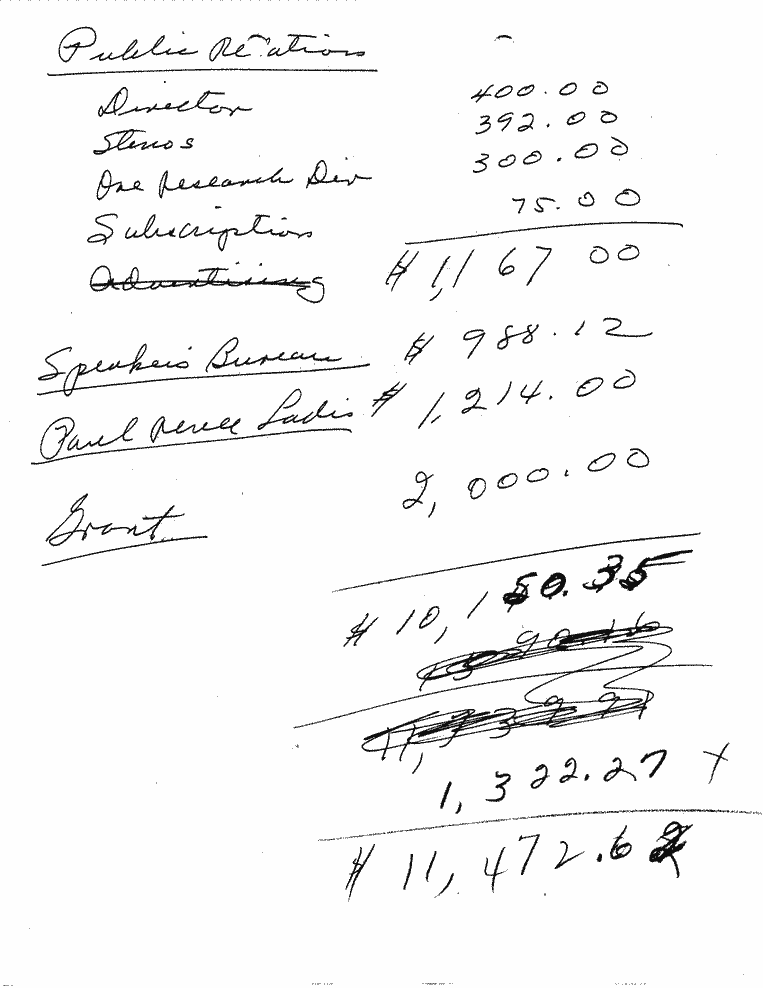 Public Relations
Director 400.00
Stenos 392.00
One Research Div 300.00
Subscription 75.00
Advertising $ 1,167 00
Speakers Bureau $ 988.12
Paul $ 1,214.00
Grant 2,000.00
$ 10,150.35
1,322.27 +
$ 11,472.62